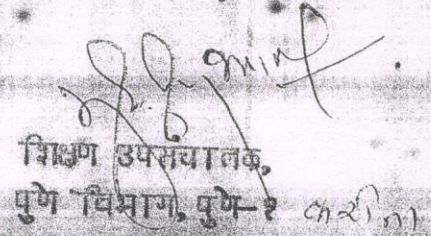 शिक्षण उपसंचालक,
पुणे विभाग, पुणे-१ करीता